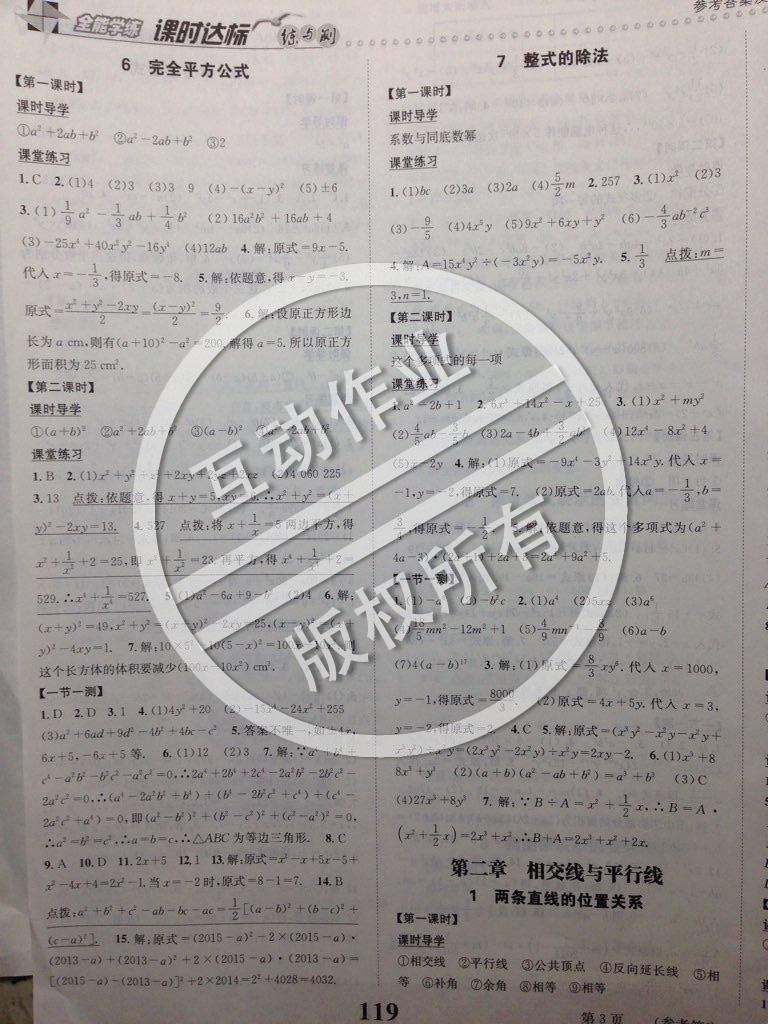 全能学练 课时达标 练与测
参考答案及
6 完全平方公式
【第一课时】
课时导学
①a²+2ab+b² ②a²-2ab+b² ③2
课堂练习
1.C 2.(1)4 (2)3 (3)3 9 (4)-(x-y)² (5)±6
3.(1)1/9a²-1/3ab+1/4b² (2)16a²b²+16ab+4
(3)-25x⁴+40x²y²-16y⁴ (4)12ab 4.解:原式=9x-5.
代入x=-1/3,得原式=-8. 5.解:依题意,得x-y=-3.
原式=(x²+y²-2xy)/2=(x-y)²/2=9/2. 6.解:设原正方形边
长为a cm,则有(a+10)²-a²=200,解得a=5.所以原正方
形面积为25 cm².
【第二课时】
课时导学
①(a+b)² ②a²+2ab+b² ③(a-b)² ④a²-2ab+b²
课堂练习
1.B 2.(1)x²+y²+z²+2xy+2yz+2xz (2)4 060 225
3.13 点拨:依题意,得x+y=5,xy=6.∴x²+y²=(x+
y)²-2xy=13. 4.527 点拨:将x+1/x=5两边平方,得
x²+1/x²+2=25,即x²+1/x²=23.再平方,得x⁴+1/x⁴+2=
529.∴x⁴+1/x⁴=527. 5.(1)a²-6a+9-b² (2)4 6.解:
(x+y)²=49,x²+y²=(x+y)²-2xy=25,(x-y)²=(x+
y)²-4xy=1. 7.解:10×5²-10(5-x)²=100x-10x²,则
这个长方体的体积要减少(100x-10x²) cm³.
【一节一测】
1.D 2.D 3.1 4.(1)4y²+20 (2)-15x⁴-24x²+255
(3)a²+6ad+9d²-4b²+4bc-c² 5.答案不唯一,如±4x,
6x+5,-6x+5等. 6.(1)12 (2)3 7.解:∵a⁴+b⁴+
c⁴-a²b²-b²c²-a²c²=0,∴2a⁴+2b⁴+2c⁴-2a²b²-2b²c²-
2a²c²=0,∴(a⁴-2a²b²+b⁴)+(b⁴-2b²c²+c⁴)+(c⁴-
2a²c²+a⁴)=0,即(a²-b²)²+(b²-c²)²+(c²-a²)²=0,
∴a²=b²=c²,∴a=b=c,∴△ABC为等边三角形. 8.C
9.A 10.D 11.2x+5 12.1 13.解:原式=x²-x+5x-5+
x²-4x+4=2x²-1.当x=-2时,原式=8-1=7. 14.B
点拨:a²+b²+c²-ab-bc-ac=1/2[(a-b)²+(b-c)²+
(c-a)²]. 15.解:原式=(2015-a)²-2×(2015-a)·
(2013-a)+(2013-a)²+2×(2015-a)·(2013-a)=
[(2015-a)-(2013-a)]²+2×2014=2²+4028=4032.
7 整式的除法
【第一课时】
课时导学
系数与同底数幂
课堂练习
1.(1)bc (2)3a (3)2a (4)5/2m 2.257 3.(1)x² (2)3
(3)-9/5 (4)4x⁵y (5)9x²+6xy+y² (6)-4/3ab⁻²c³
4.解:A=15x⁴y²÷(-3x²y)=-5x²y. 5.1/3 点拨:m=
3,n=1.
【第二课时】
课时导学
这个多项式的每一项
课堂练习
1.a²-2b+1 2.6x³+14x²-x+25 3.(1)x²+my²
(2)4/5ab-3/5b (3)2a-4b+3/2ab² (4)12x⁴-8x²+4
(5)x-2y 4.解:(1)原式=-9x⁴-3y²+14x³y.代入x=
-1,y=-2,得原式=7. (2)原式=2ab.代入a=-1/3,b=
3/4,得原式=-1/2. 5.解:依题意,得这个多项式为(a²+
4a-3)·(2a+1)+2a+8=2a³+9a²+5.
【一节一测】
1.(1)-a (2)-b²c 2.(1)a⁴ (2)5xz (3)a⁶
(4)18/5mn²-12m²+1 (6)a-b
(7)4(a-b)¹⁷ 3.解:(1)原式=8/3xy⁶.代入x=1000,
y=-1,得原式=8000/3. (2)原式=4x+5y.代入x=3,
y=-2,得原式=2. 4.C 5.解:原式=(x³y²-x²y-x²y+
x³y²)÷x²y=(2x³y²-2x²y)÷x²y=2xy-2. 6.(1)x³+8
8x³+y³ (2)(a+b)(a²-ab+b²)=a³+b³ (3)C
(4)27x³+8y³ 7.解:∵B÷A=x²+1/2x,∴B=A·
(x²+1/2x)=2x³+x²,∴B+A=2x³+x²+2x.
第二章 相交线与平行线
1 两条直线的位置关系
【第一课时】
课时导学
①相交线 ②平行线 ③公共顶点 ④反向延长线 ⑤相
等 ⑥补角 ⑦余角 ⑧相等 ⑨相等
119
第3页
互动作业
版权所有